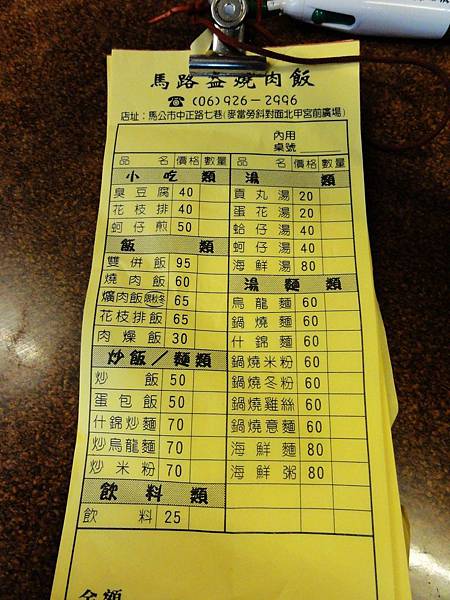 馬路益燒肉飯
☎ (06)926-2996
店址：馬公市中正路七巷(麥當勞斜對面北甲宮前廣場)
內用
桌號
品名 價格 數量
小吃類
臭豆腐 40
花枝排 40
蚵仔煎 50
飯類
雙併飯 95
燒肉飯 60
爌肉飯限秋冬 65
花枝排飯 65
肉燥飯 30
炒飯／麵類
炒飯 50
蛋包飯 50
什錦炒麵 70
炒烏龍麵 70
炒米粉 70
飲料類
飲料 25
品名 價格 數量
湯類
貢丸湯 20
蛋花湯 20
蛤仔湯 40
蚵仔湯 40
海鮮湯 80
湯麵類
烏龍麵 60
鍋燒麵 60
什錦麵 60
鍋燒米粉 60
鍋燒冬粉 60
鍋燒雞絲 60
鍋燒意麵 60
海鮮麵 80
海鮮粥 80
金額